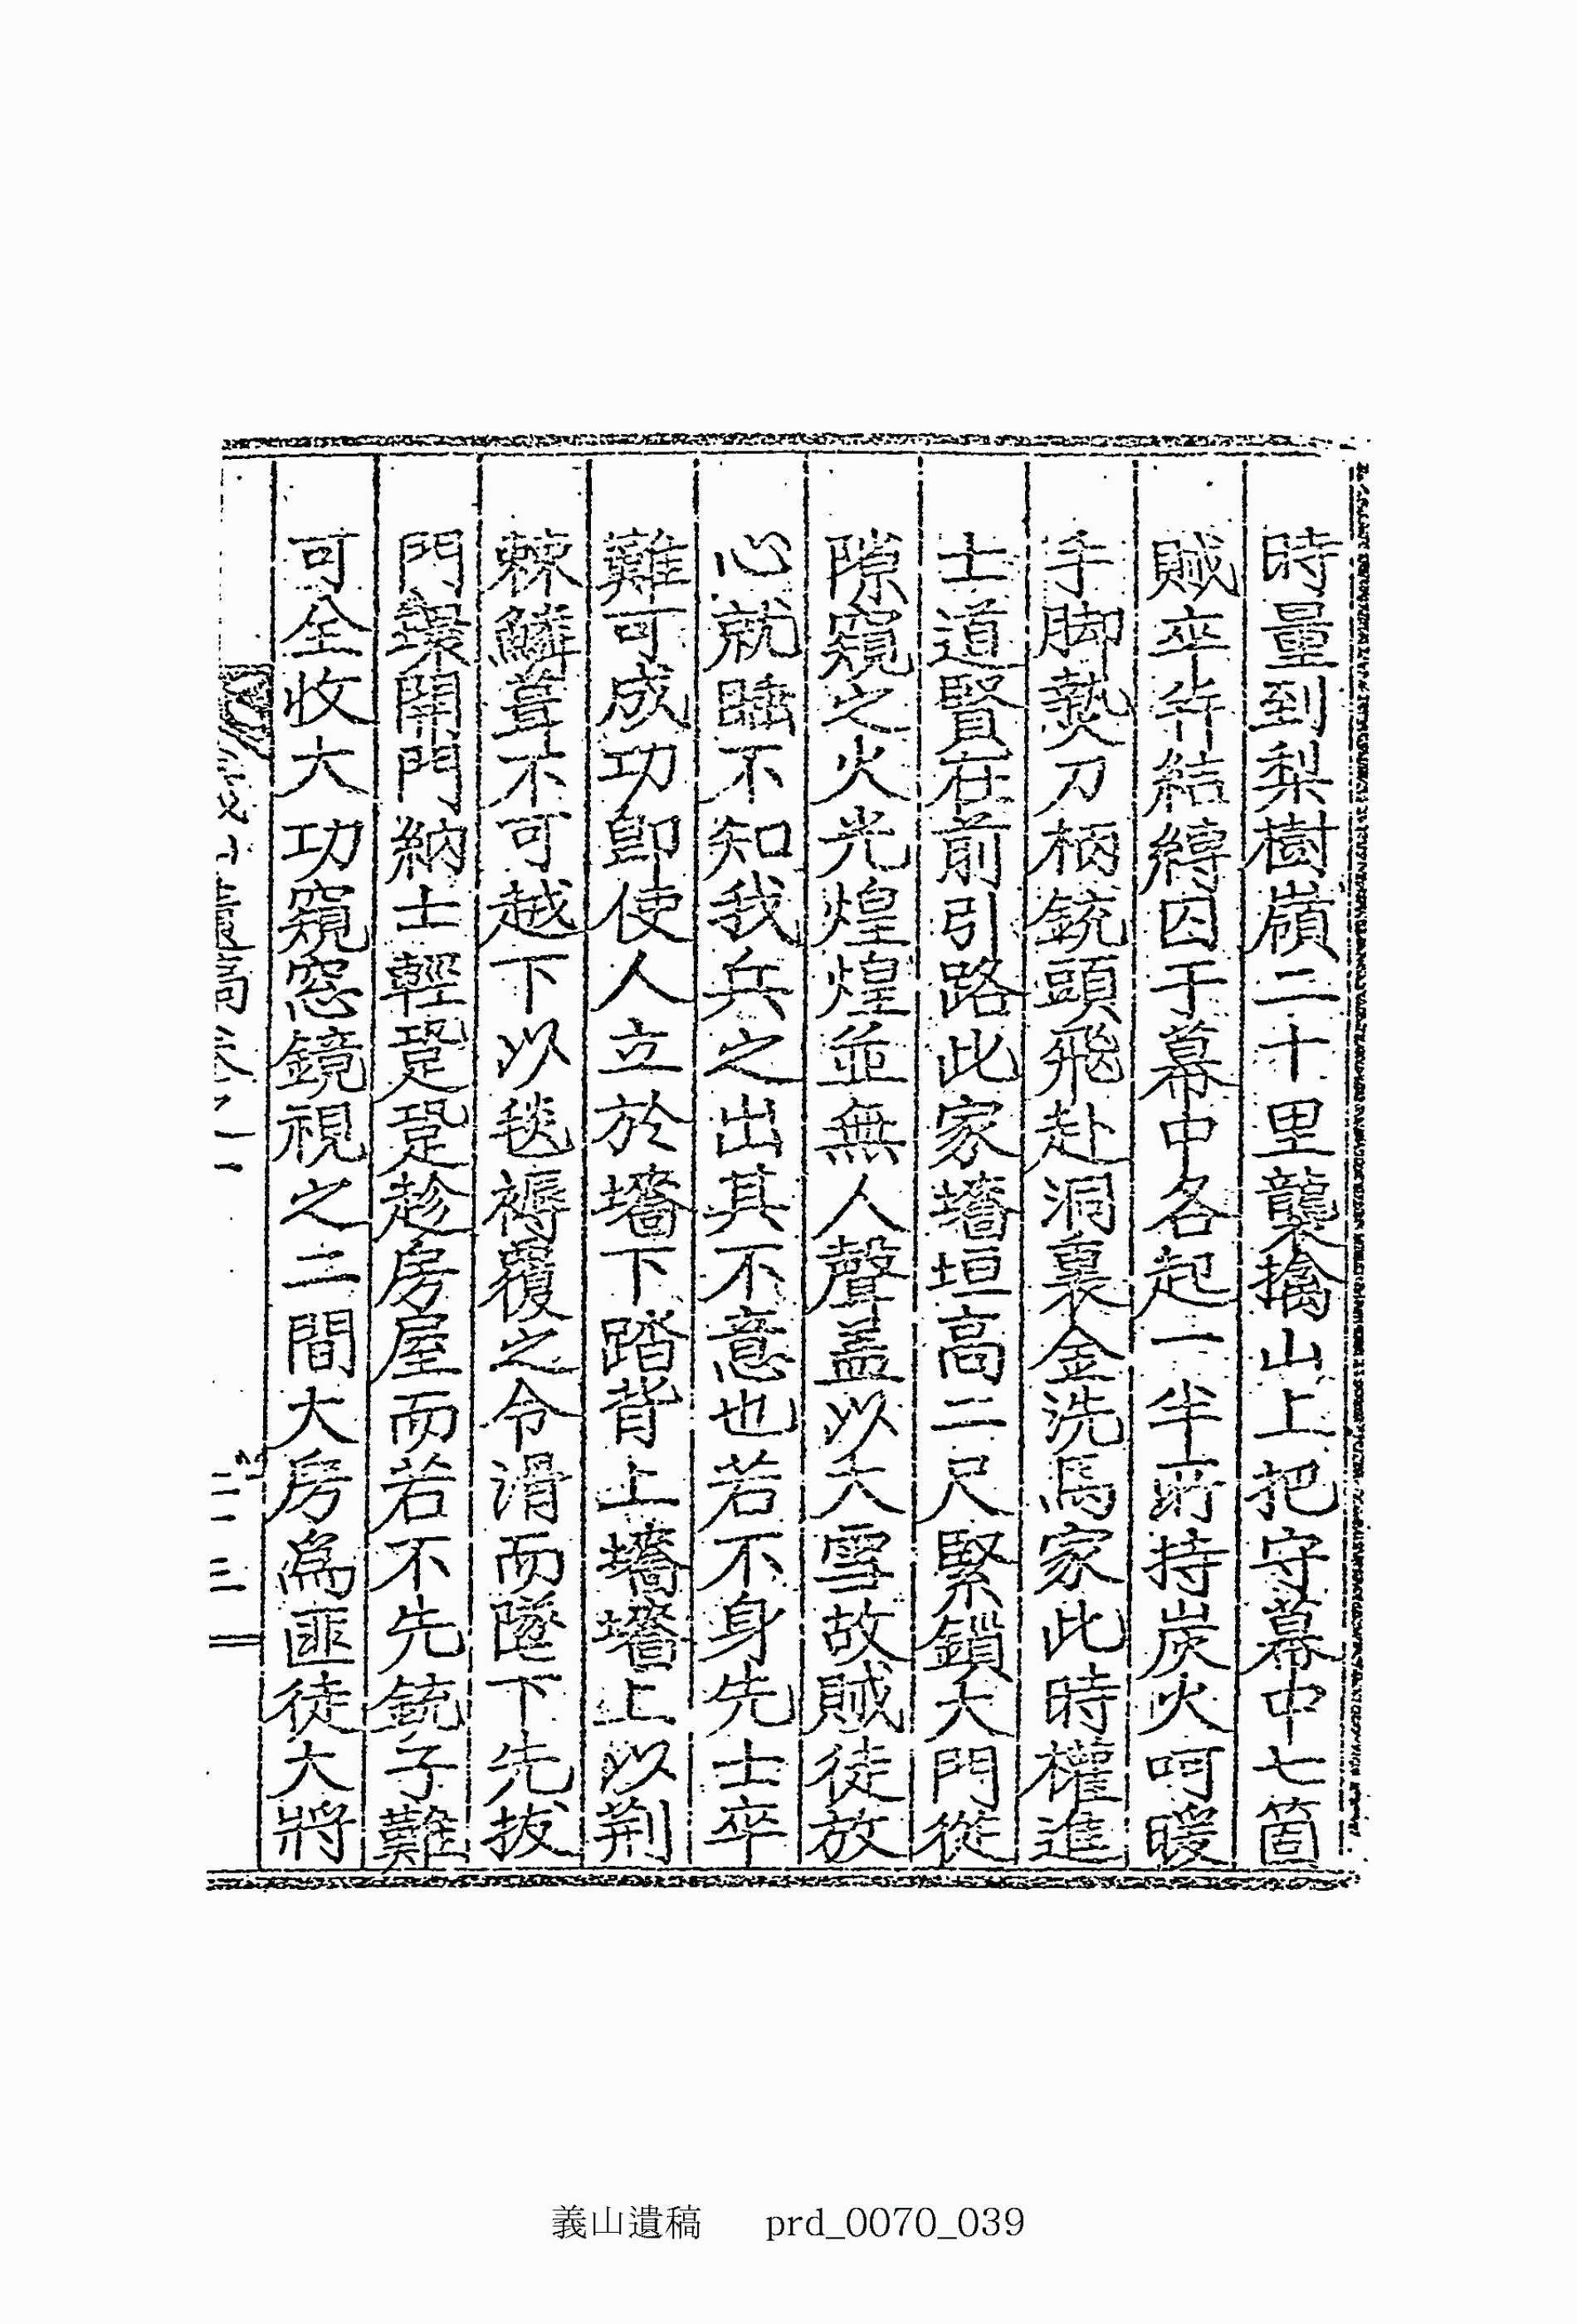 時量到梨樹嶺二十里襲擒山上把守幕中七箇
賊卒幷結縛囚于幕中各起一半所持炭火呵暖
手脚熱刀柄銃頭飛赴洞裏金洗馬家此時權進
士道賢在前引路此家墻垣高二尺緊鎖大門從
隙窺之火光煌煌並無人聲盖以大雪故賊徒放
心就睡不知我兵之出其不意也若不身先士卒
難可成功卽使人立於墻下踏背上墻墻上以荆
棘鱗葺不可越下以毯褥覆之令滑而墜下先拔
門環開門納士輕跫跫趁房屋而若不先銃子難
可全收大功窺窓鏡視之二間大房爲匪徒大將
義山遺稿卷之一
三三
義山遺稿 prd_0070_039